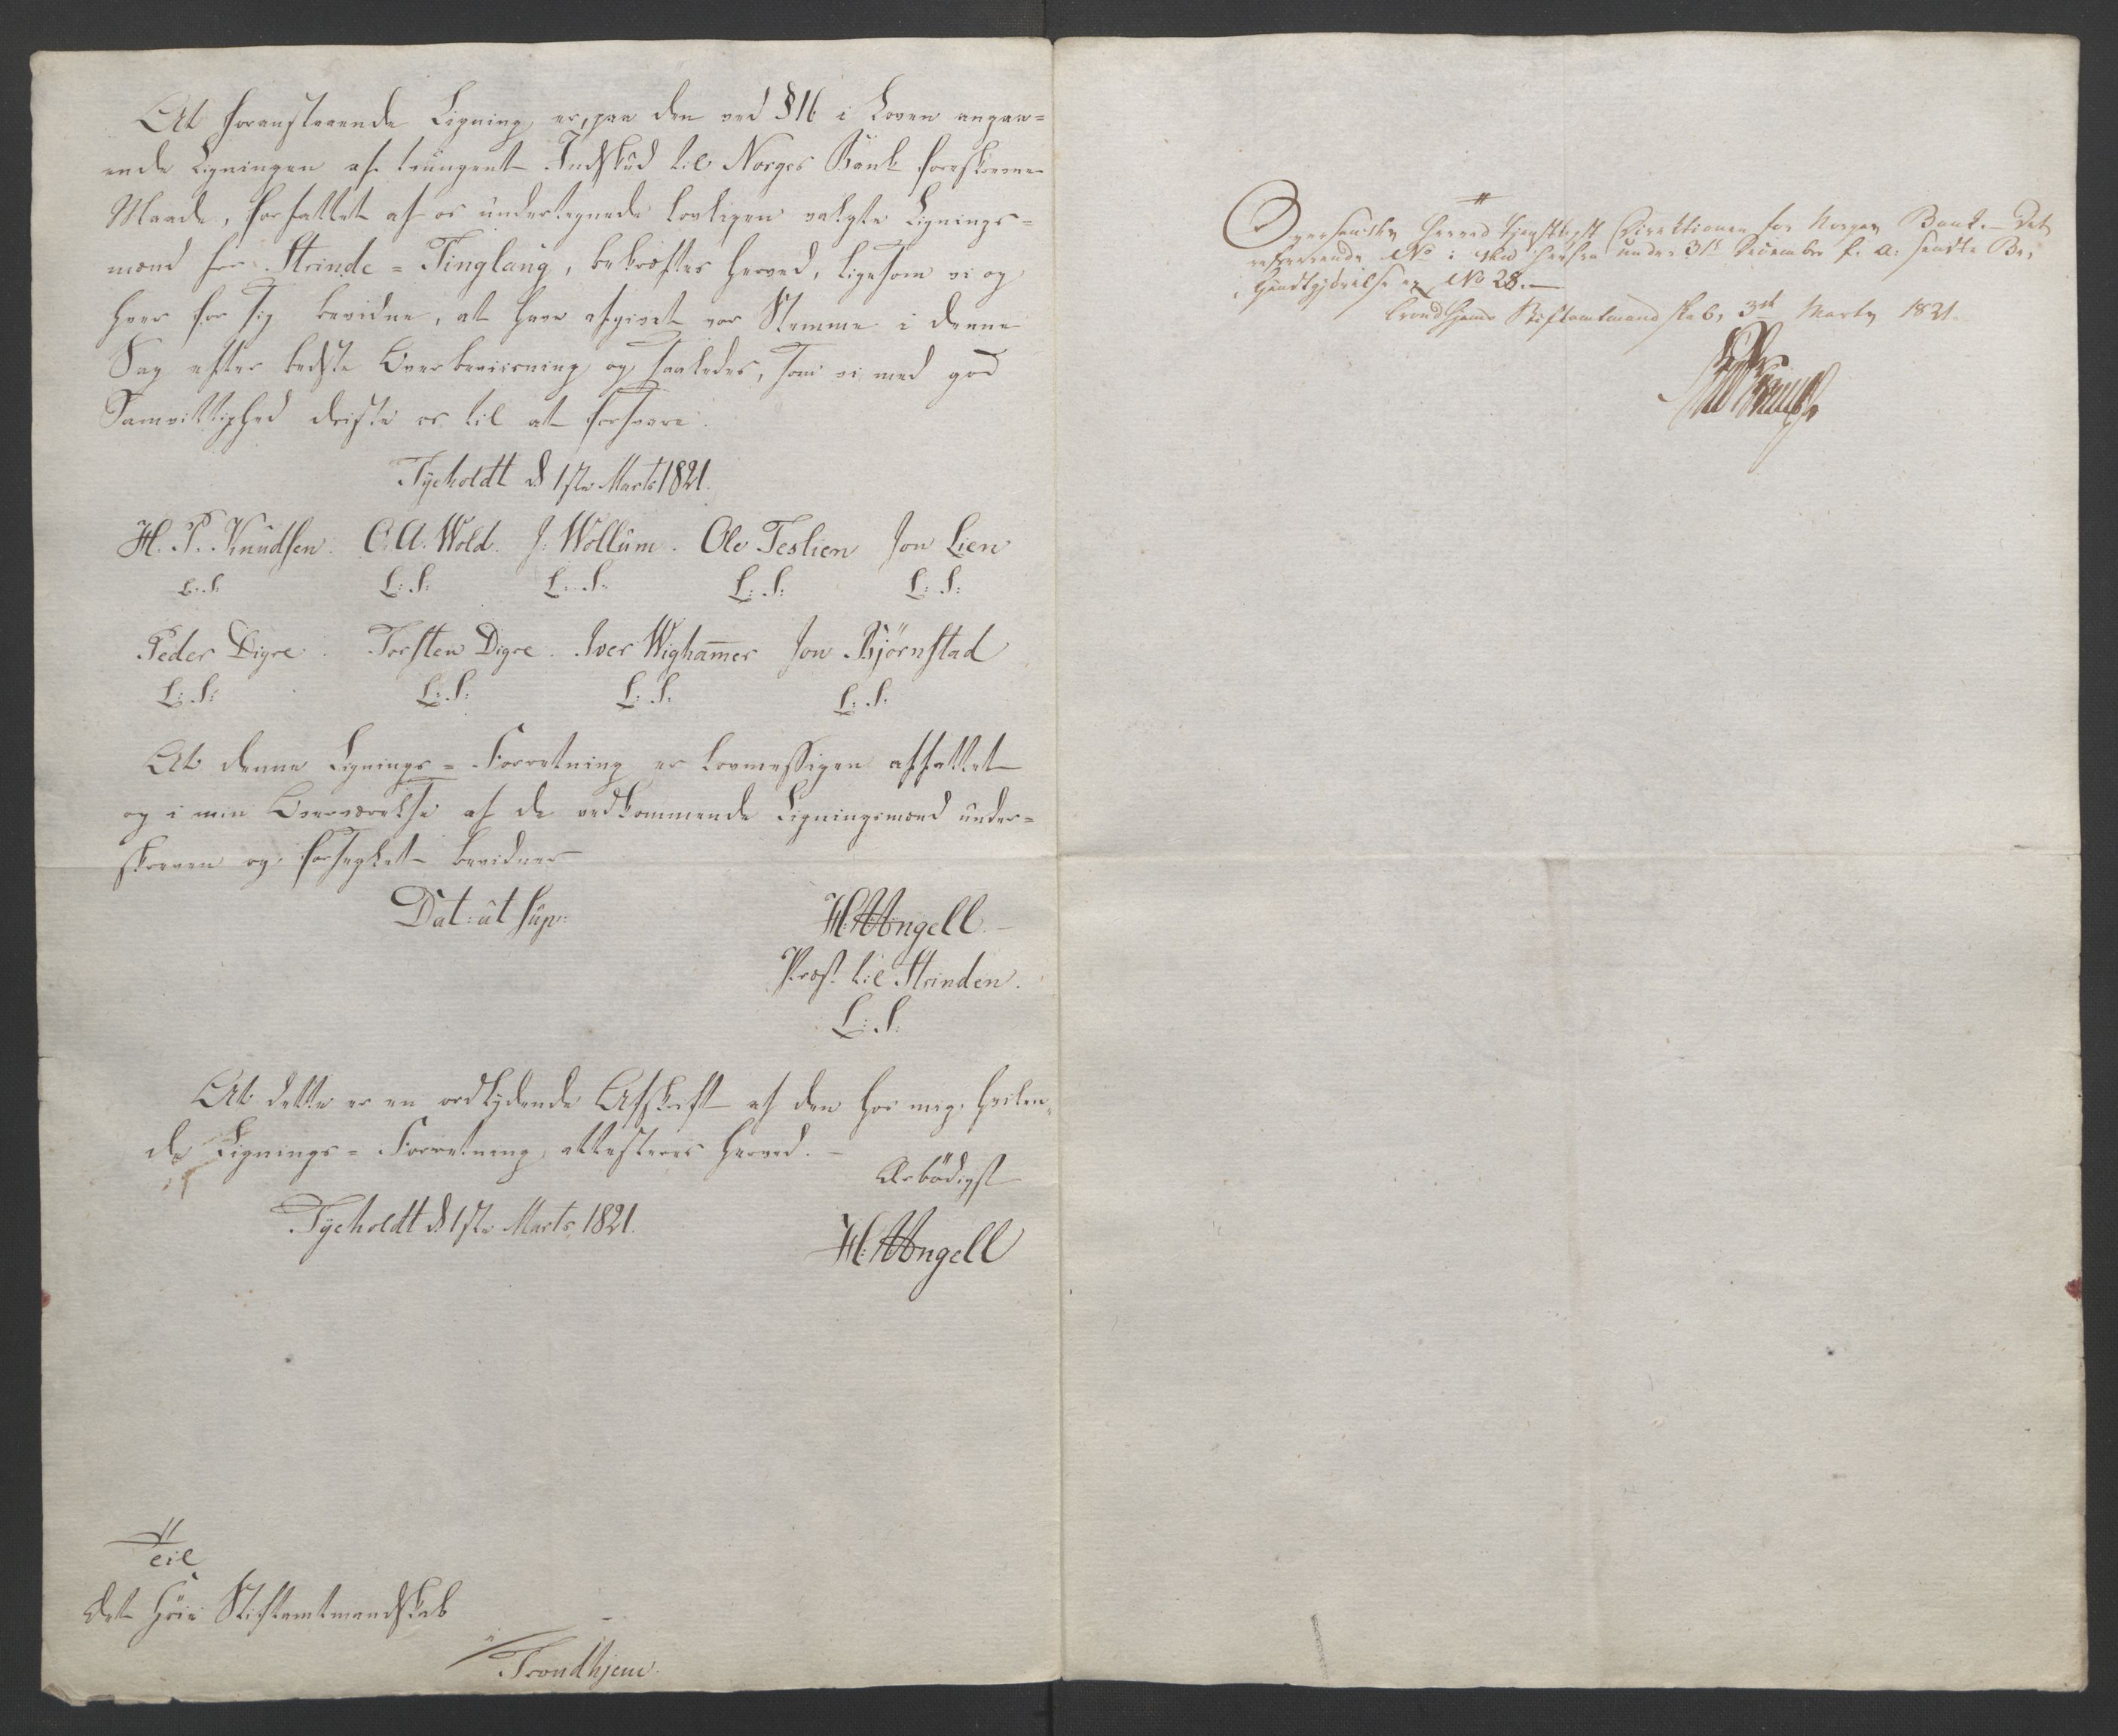 At foranstaaende Ligning er, paa den ved §16 i Loven angaa=
ende Ligningen af tvungent Indskud til Norges Bank foreskrevne
Maade, forfattet af os undertegnede lovligen valgte Lignings=
mænd for Strinde=Tinglaug, bekræftes herved, ligesom vi og
hver for sig bevidne, at have afgivet vor Stemme i denne
Sag efter bedste Overbeviisning og saaledes, som vi med god
Samvittighed driste os til at forsvare.
Tycholdt d 1ste Marts 1821.
H. P. Knudsen. C. A. Wold. J. Wollum. Ole Teslien Jon Lien
L: S: L: S: L: S: L: S: L: S:
Peder Digre. Torsten Digre. Iver Wighamer Jon Björnstad
L: S: L: S: L: S: L: S:
At denne Lignings=Forretning er lovmessigen affattet
og i min Overværelse af de vedkommende Ligningsmænd under=
skreven og forseglet bevidner
Dat: ut sup:
H. Angell.
Præst til Strinden.
L: S:
At dette er en ordlydende Afskrift af den hos mig hvilen=
de Lignings=Forretning attesteres herved.
Ærbödigst
Tycholdt d 1ste Marts 1821.
H: Angell
Til
det Höie Stiftamtmandskab
i Trondhjem.
Oversendes herved tjenstligst Directionen for Norges Bank. Det
refererende No i den herfra under 31te December f. a. sendte Be=
kjendtgjörelse er No 28.
Trondhjems Stiftamtmandskab, 3die Marts 1821.